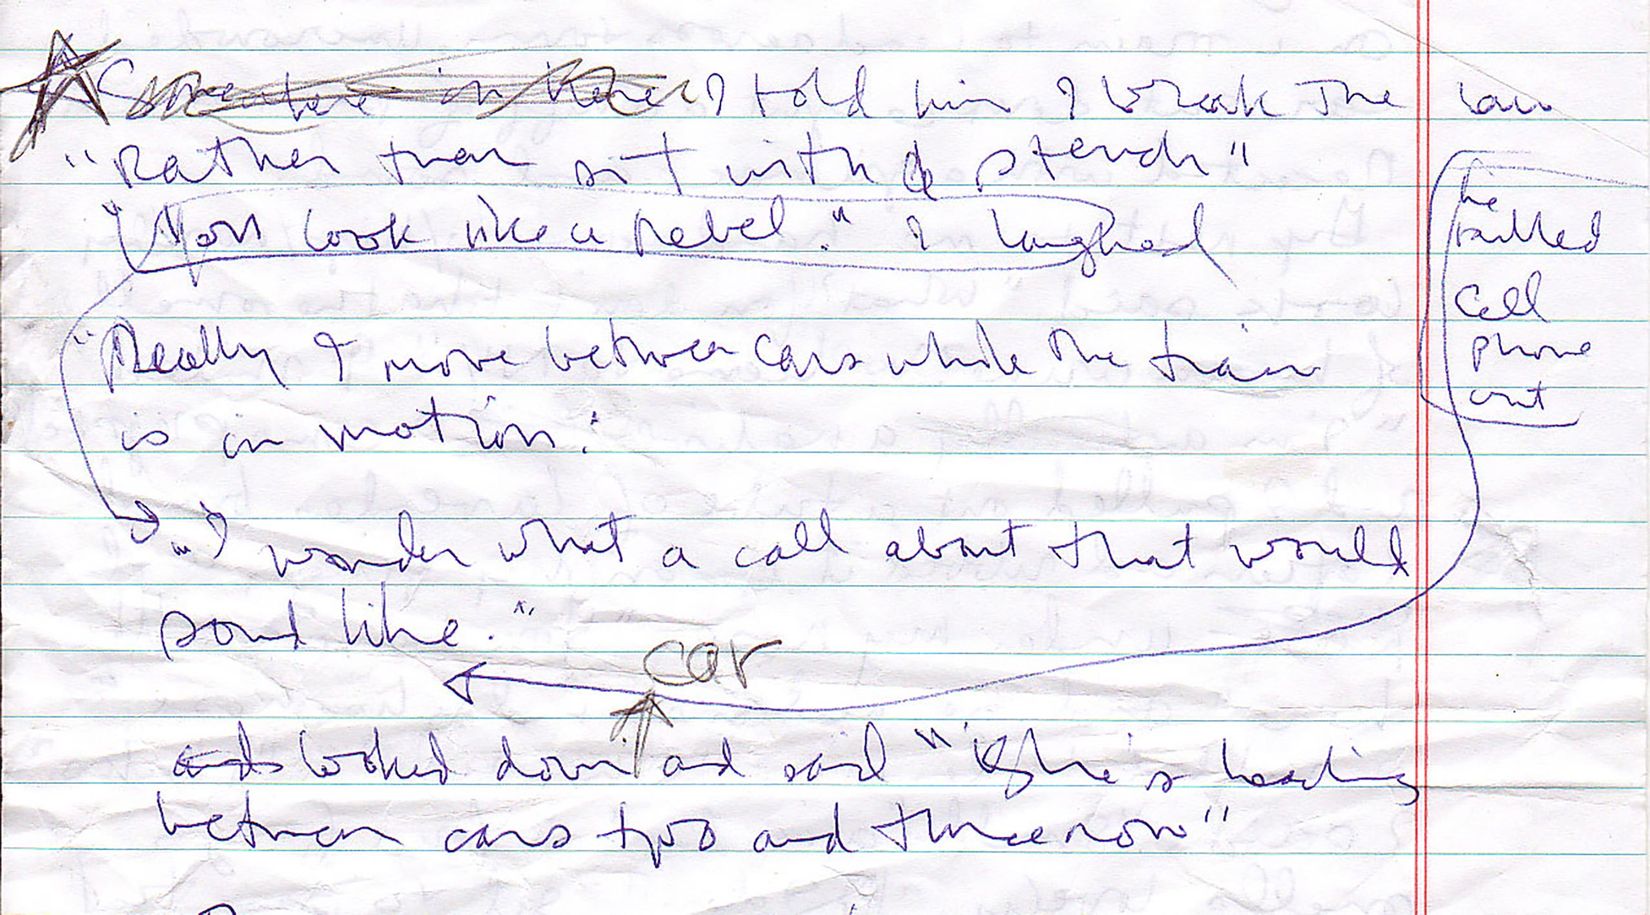 Somewhere in here I told him I break the law
"Rather than sit with a stench"
"You look like a Rebel." I laughed
he
pulled
cell
phone
out
"Really I move between cars while the train
is in motion."
"I wonder what a call about that would
sound like."
car
and looked down and said "She's heading
between cars two and three now"